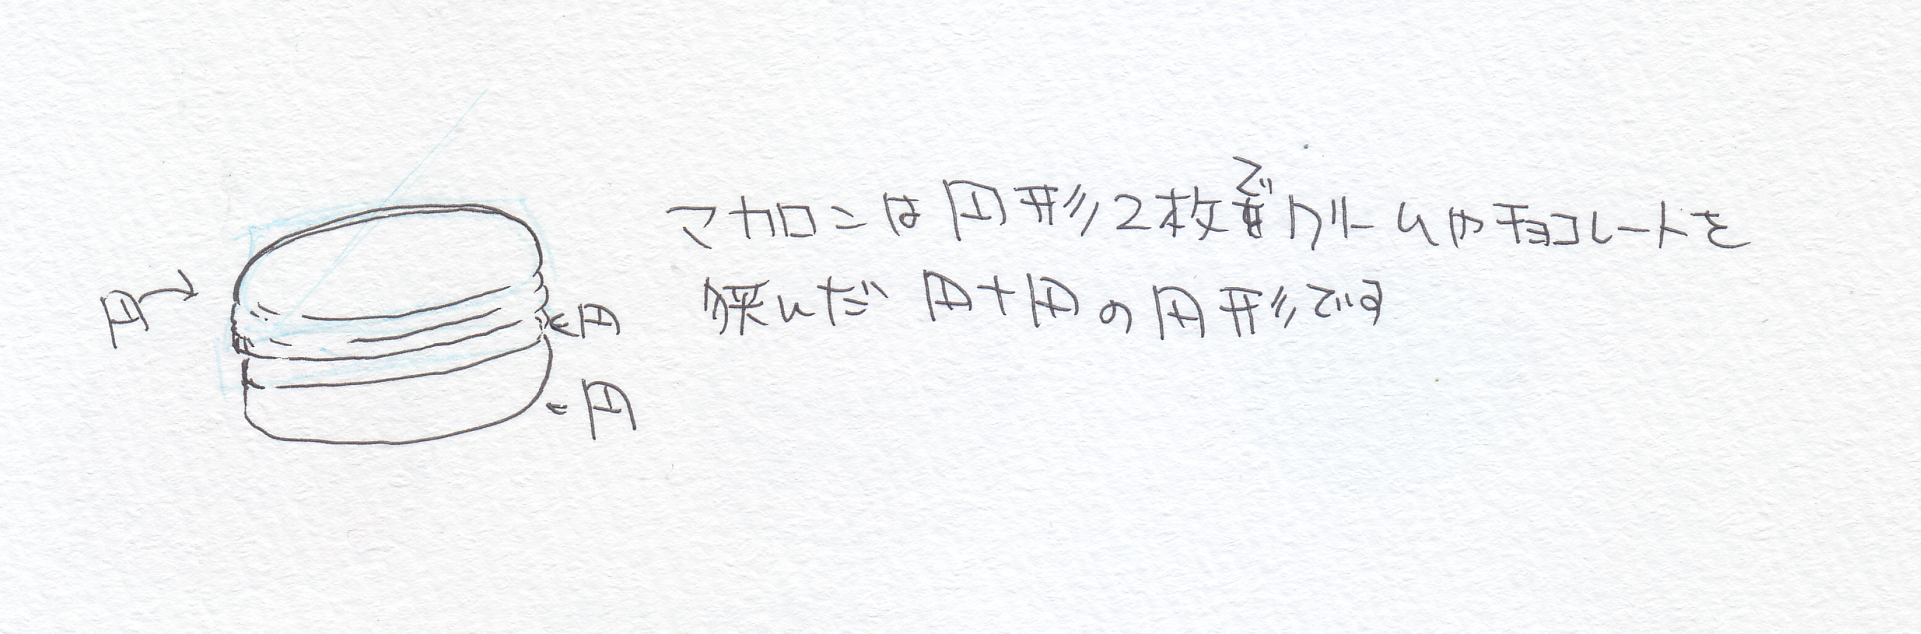 マカロンは円形2枚でクリームやチョコレートを
挟んだ円+円の円形です
円
円
円